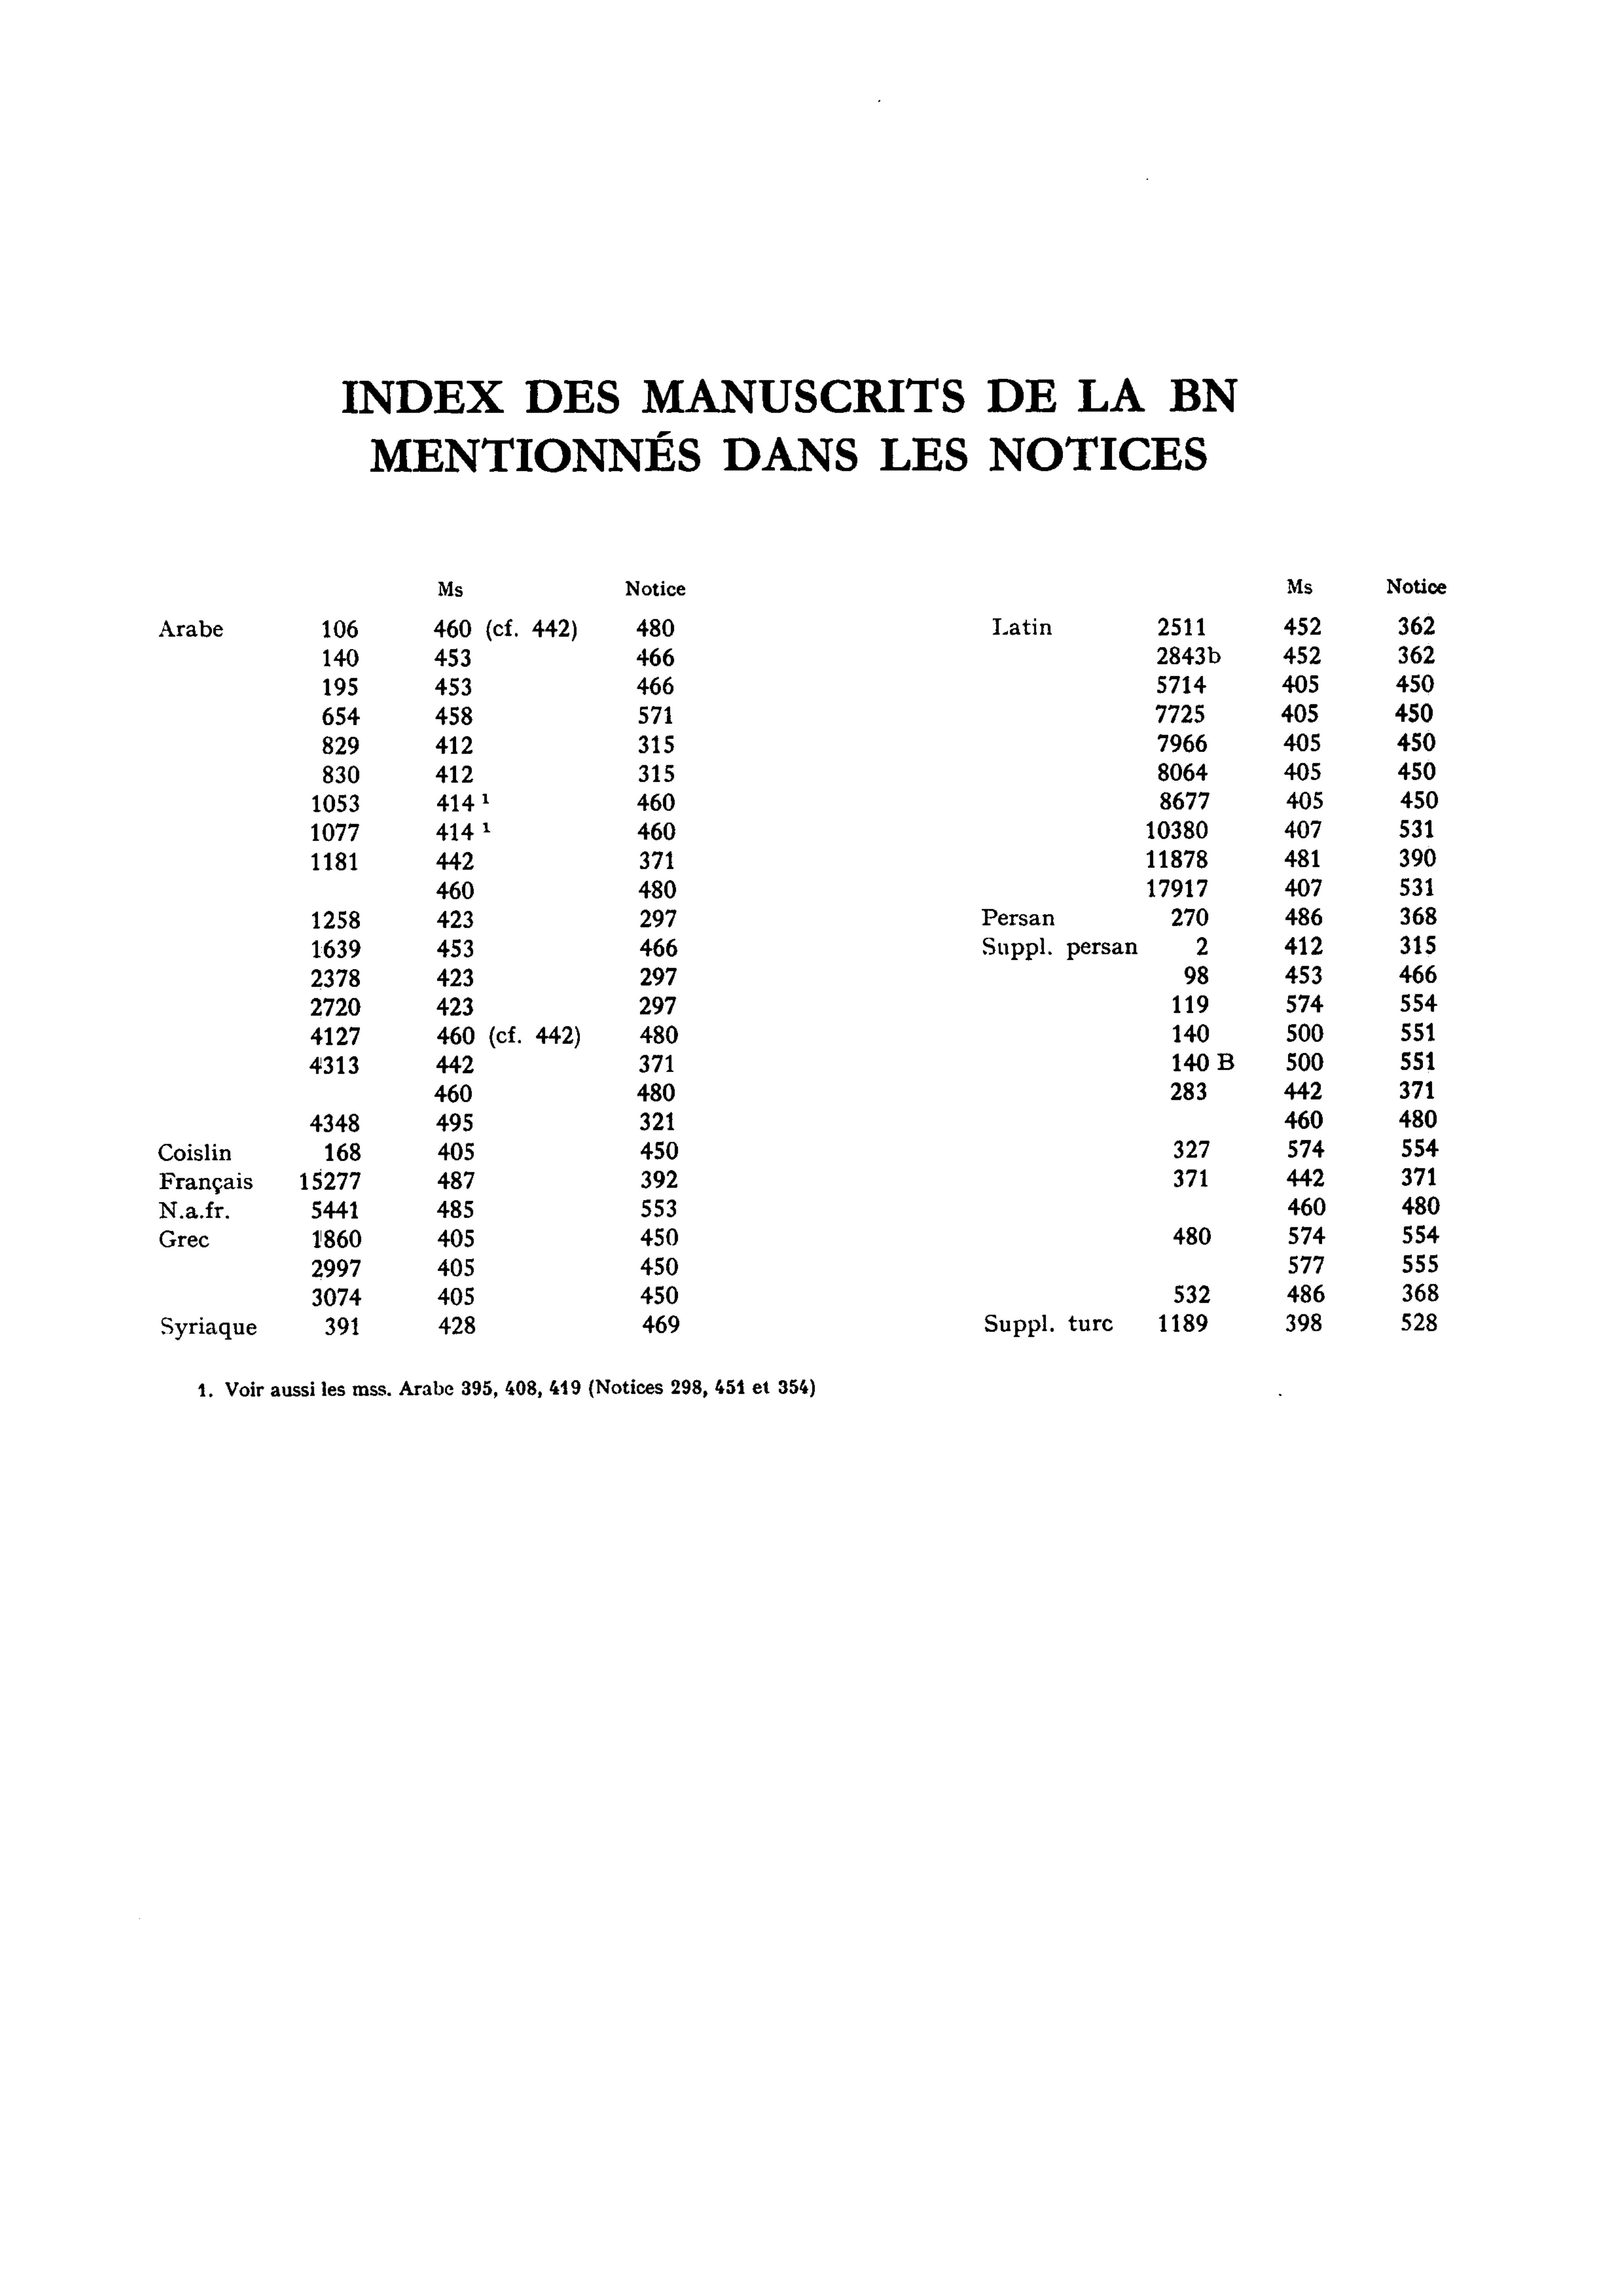 INDEX DES MANUSCRITS DE LA BN
MENTIONNÉS DANS LES NOTICES
Ms Notice
Arabe 106 460 (cf. 442) 480
140 453 466
195 453 466
654 458 571
829 412 315
830 412 315
1053 414 ¹ 460
1077 414 ¹ 460
1181 442 371
460 480
1258 423 297
1639 453 466
2378 423 297
2720 423 297
4127 460 (cf. 442) 480
4313 442 371
460 480
4348 495 321
Coislin 168 405 450
Français 15277 487 392
N.a.fr. 5441 485 553
Grec 1860 405 450
2997 405 450
3074 405 450
Syriaque 391 428 469
Ms Notice
Latin 2511 452 362
2843b 452 362
5714 405 450
7725 405 450
7966 405 450
8064 405 450
8677 405 450
10380 407 531
11878 481 390
17917 407 531
Persan 270 486 368
Suppl. persan 2 412 315
98 453 466
119 574 554
140 500 551
140 B 500 551
283 442 371
460 480
327 574 554
371 442 371
460 480
480 574 554
577 555
532 486 368
Suppl. turc 1189 398 528
1. Voir aussi les mss. Arabe 395, 408, 419 (Notices 298, 451 et 354)